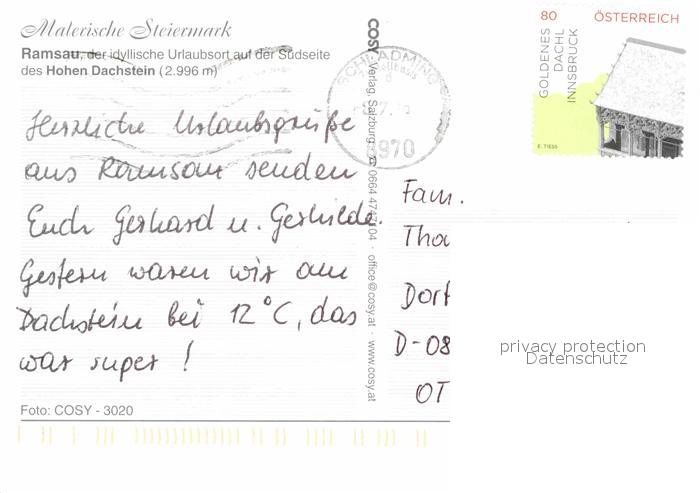 Malerische Steiermark
Ramsau, der idyllische Urlaubsort auf der Südseite
des Hohen Dachstein (2.996 m)
Herzliche Urlaubsgrüße
aus Ramsau senden
Euch Gerhard u. Gerhilde.
Gestern waren wir am
Dachstein bei 12°C, das
war super!
Foto: COSY - 3020
COSY - Verlag, Salzburg · 0664 4747104 · office@cosy.at · www.cosy.at
SCHLADMING
8970
80 ÖSTERREICH
GOLDENES
DACHL
INNSBRUCK
E. TIESS
Fam.
Tho
Dorf
D-08
OT
privacy protection
Datenschutz